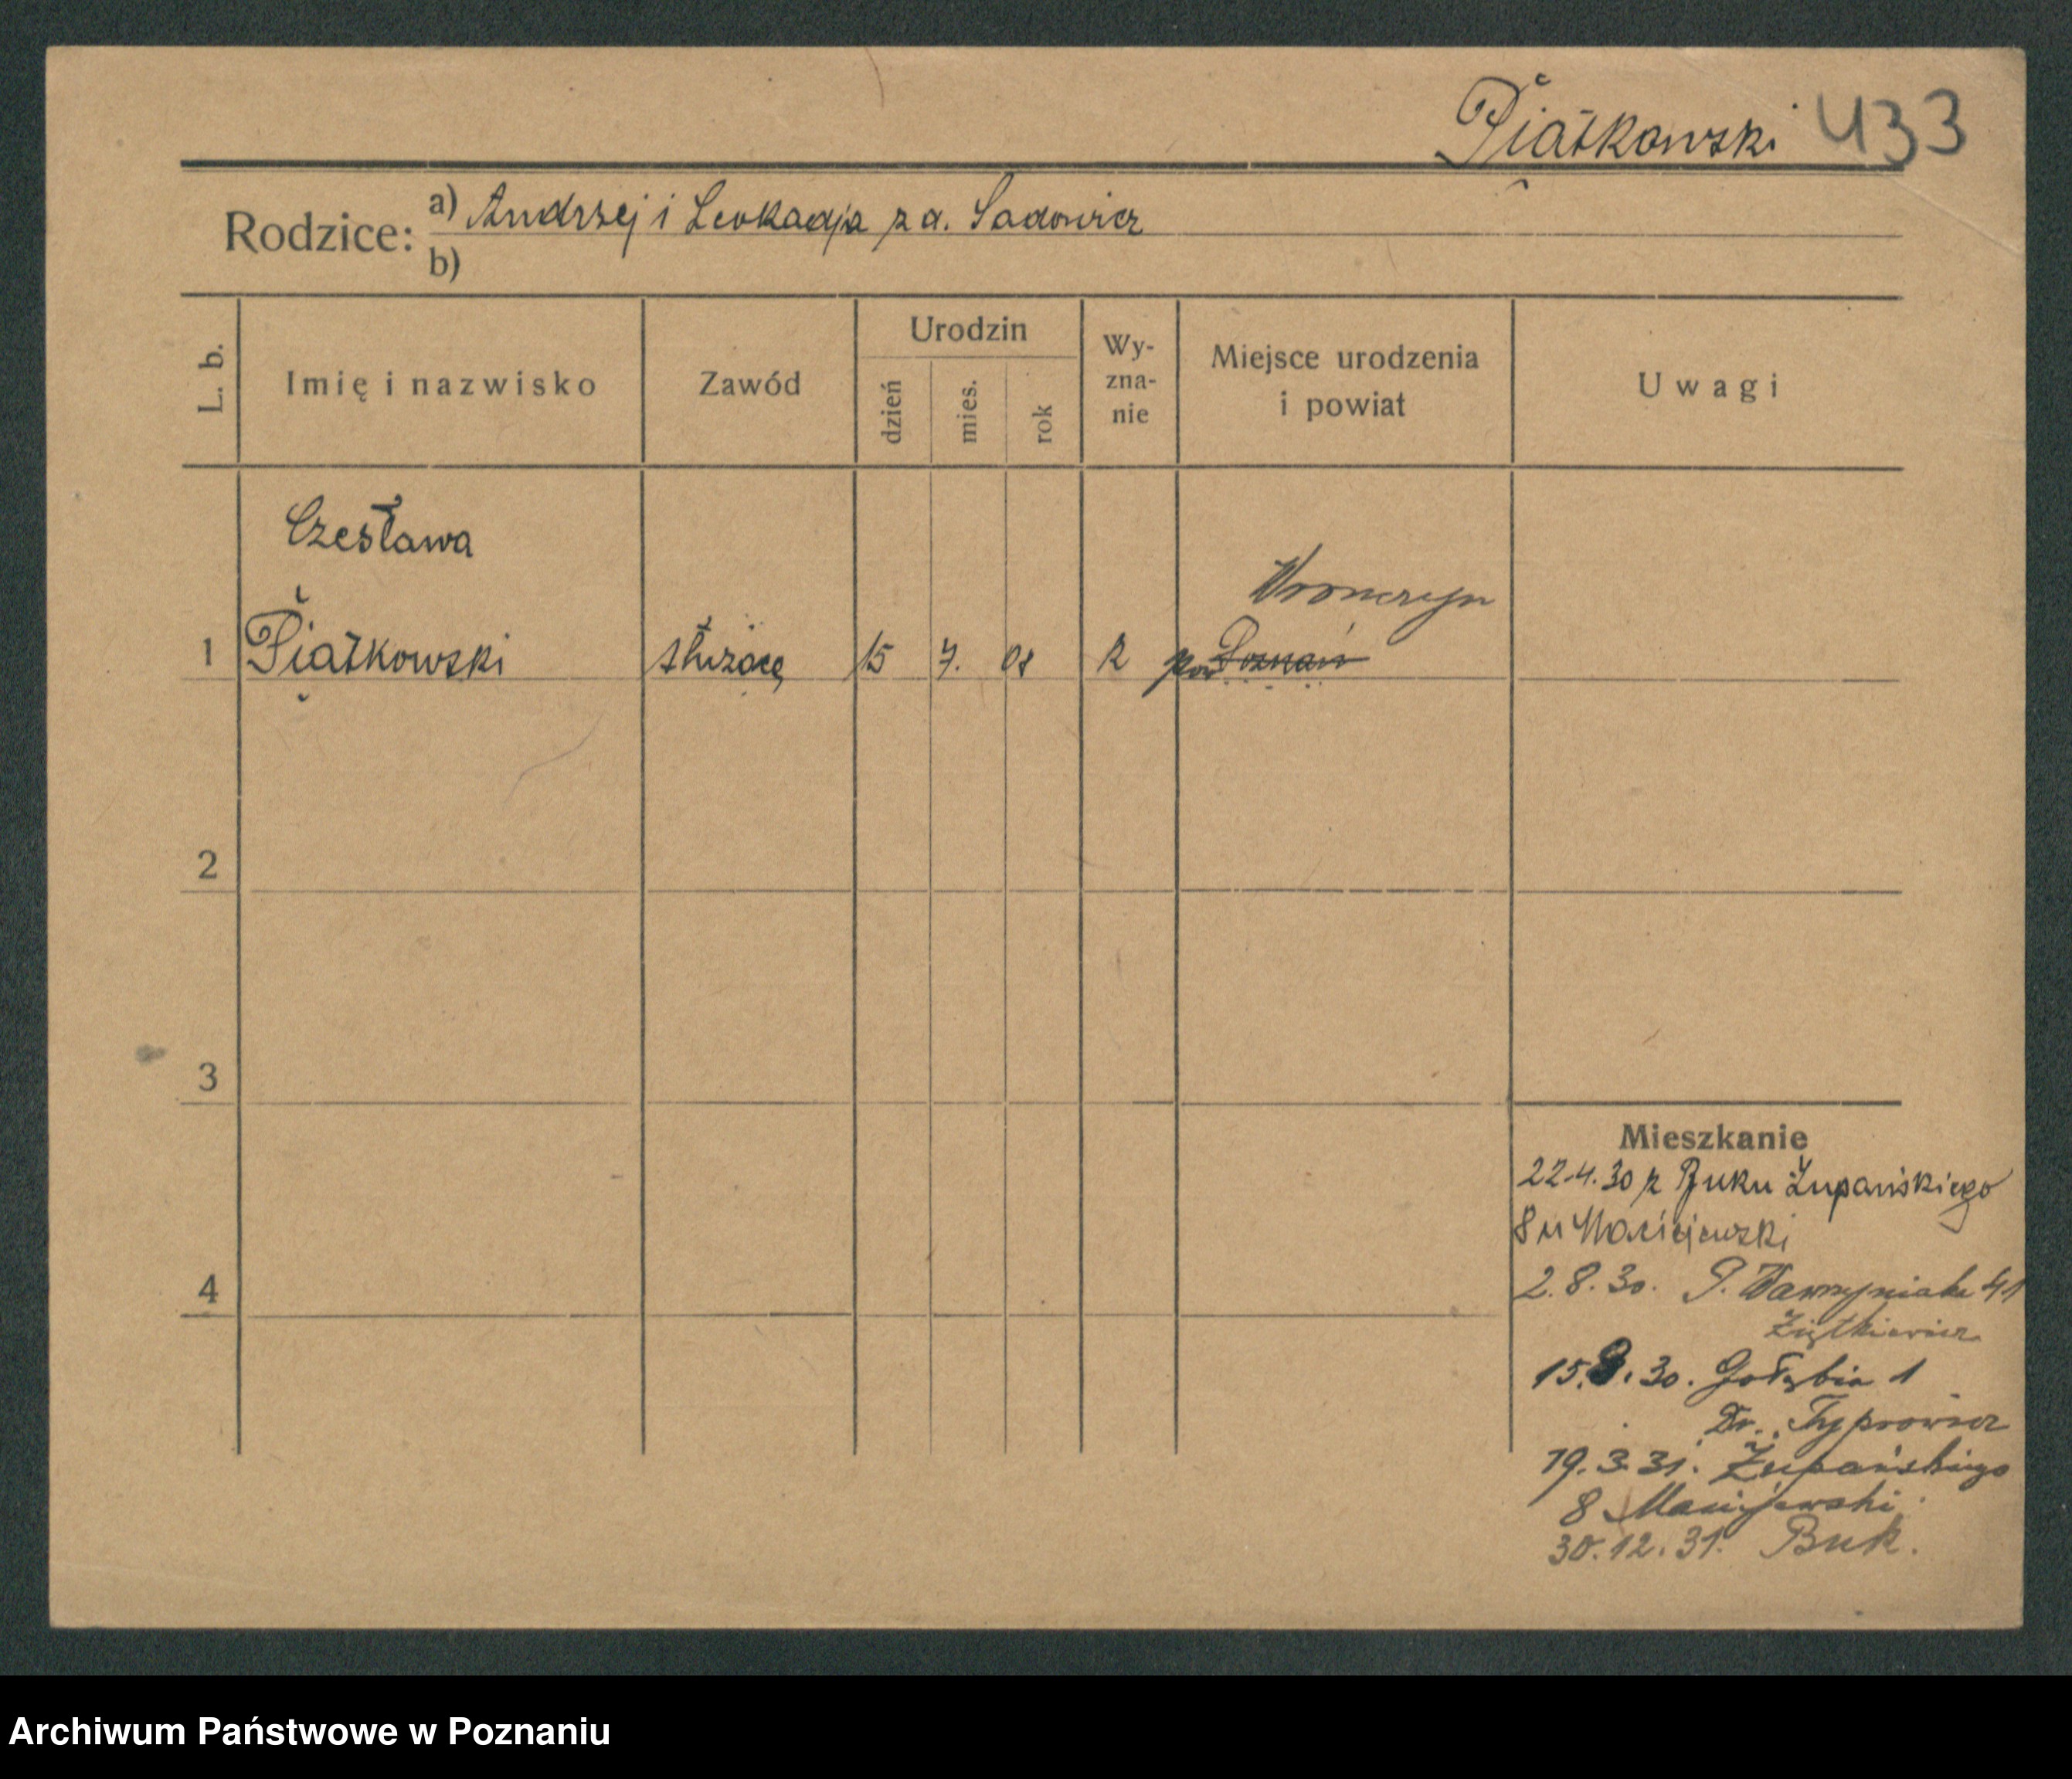 Piątkowski 433
Rodzice: a) Andrzej i Leokadja z d. Sadowicz
b)
L. b. Imię i nazwisko Zawód Urodzin dzień mies. rok Wy-zna-nie Miejsce urodzenia i powiat Uwagi
Czesława
Wronczyn
1 Piątkowski służącą 15 7. 08 R pow Poznań
2
3
Mieszkanie
22.4.30 z Buku Żupańskiego
8 u Maciejewski
4
2.8.30. P. Wawrzyniaka 41
Ziętkiewicz
15. .30. Gołębia 1
Dr.
19.3.31. Żupańskiego
8 Maciejewski.
30.12.31. Buk.
Archiwum Państwowe w Poznaniu